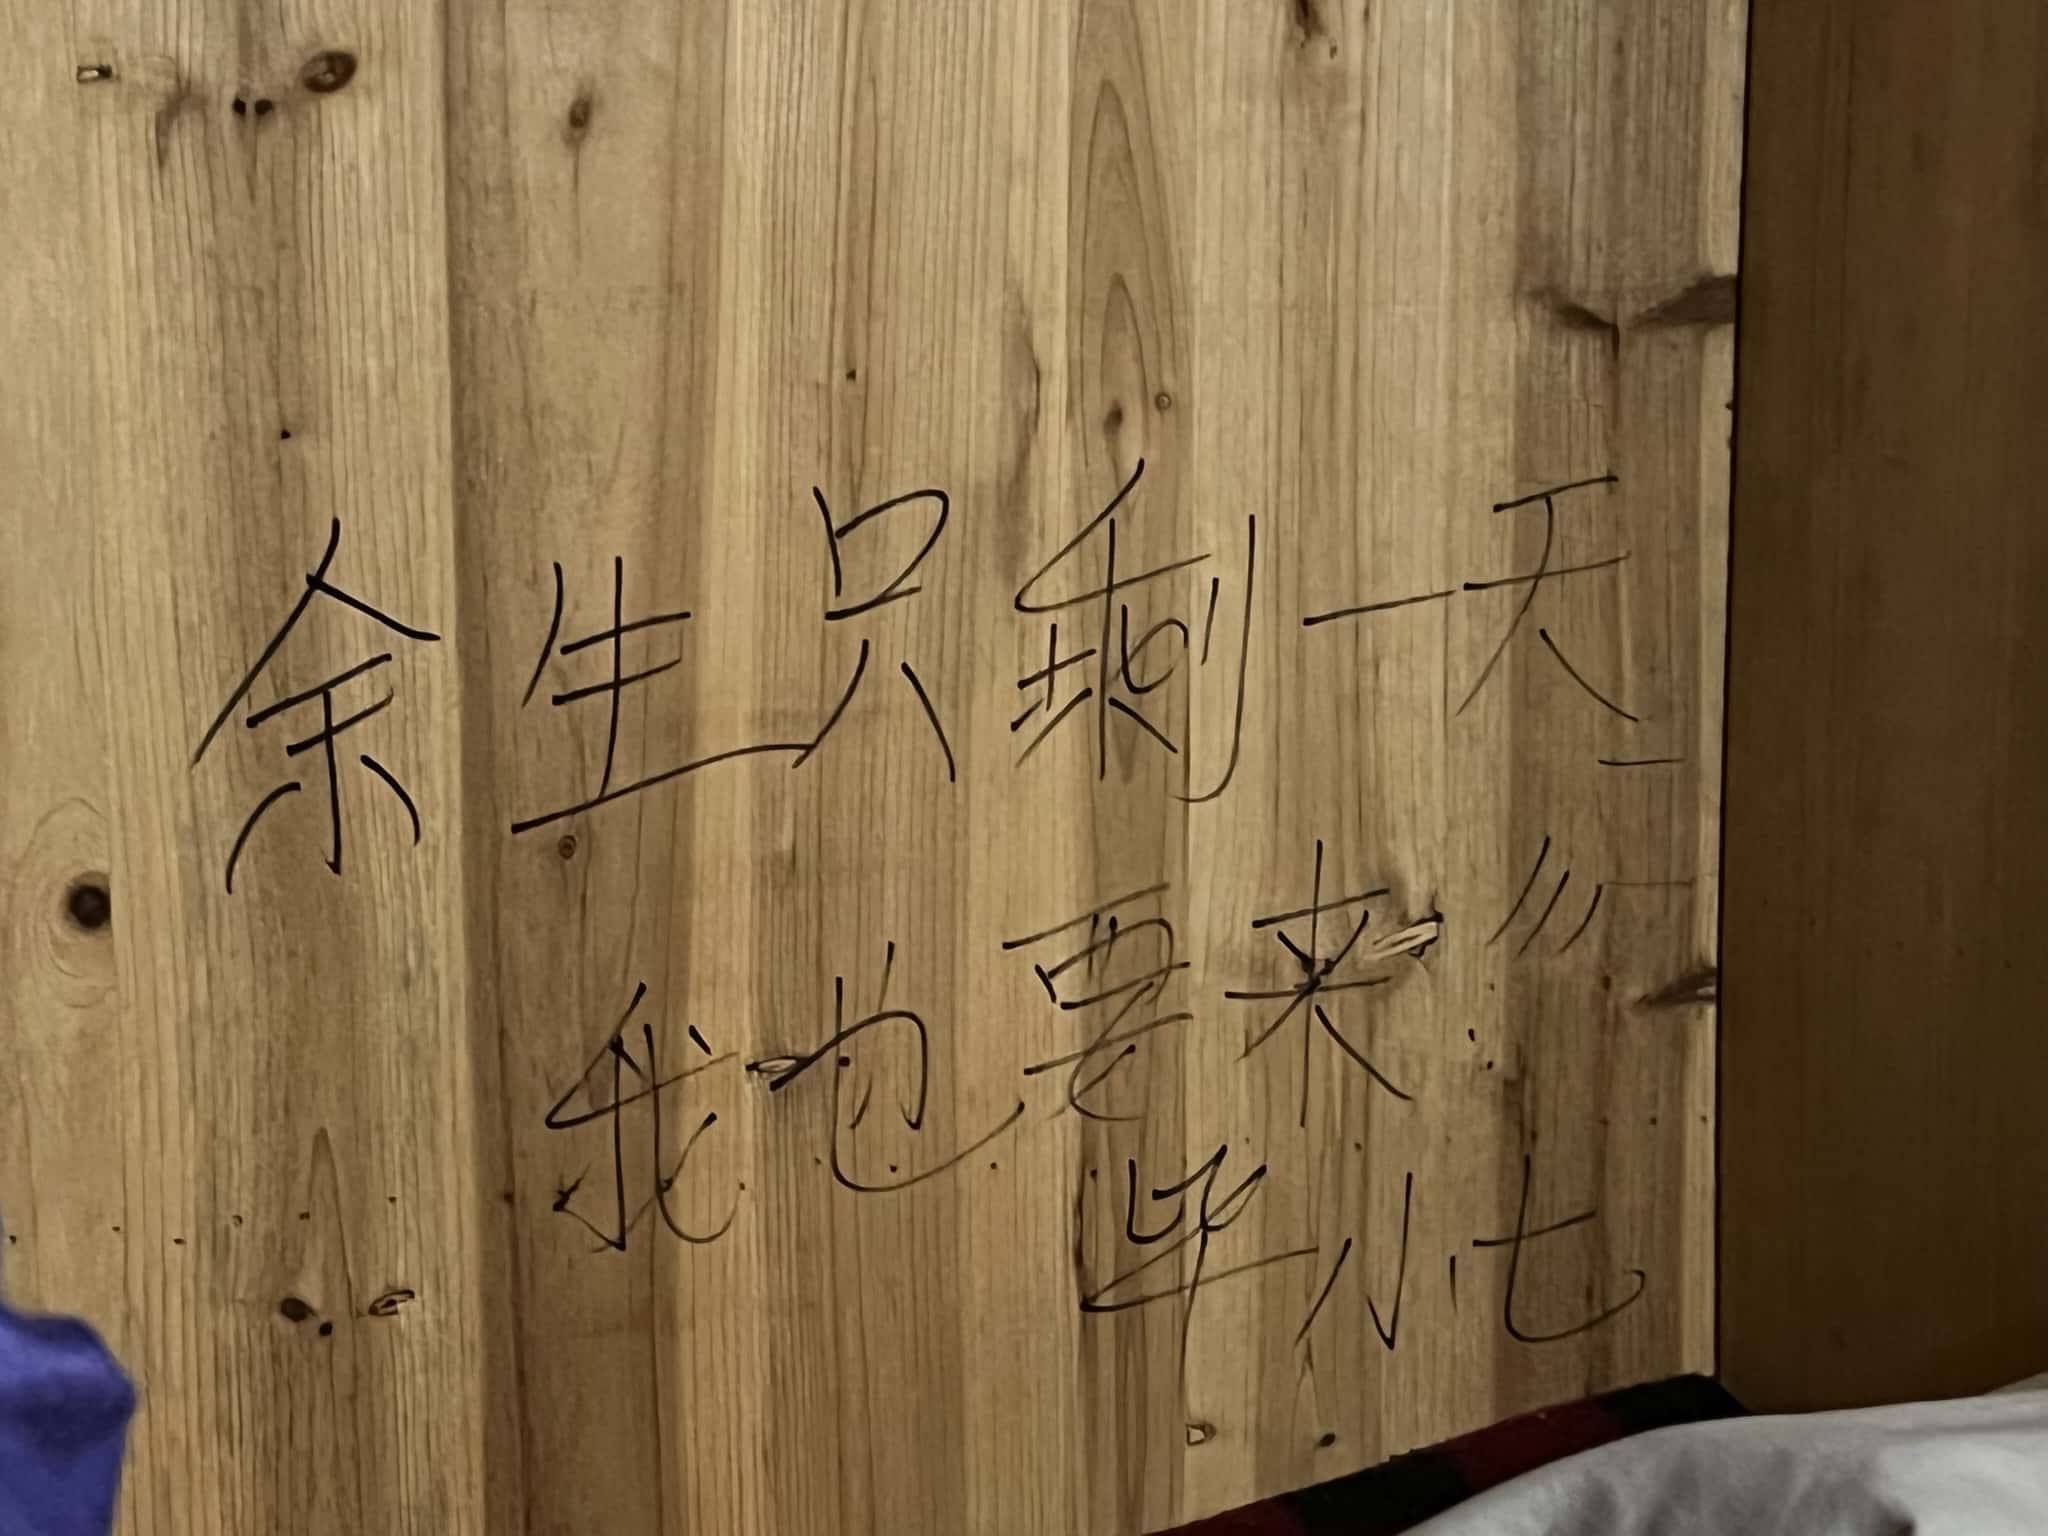 余生只剩一天
我也要来!!!
毕小七